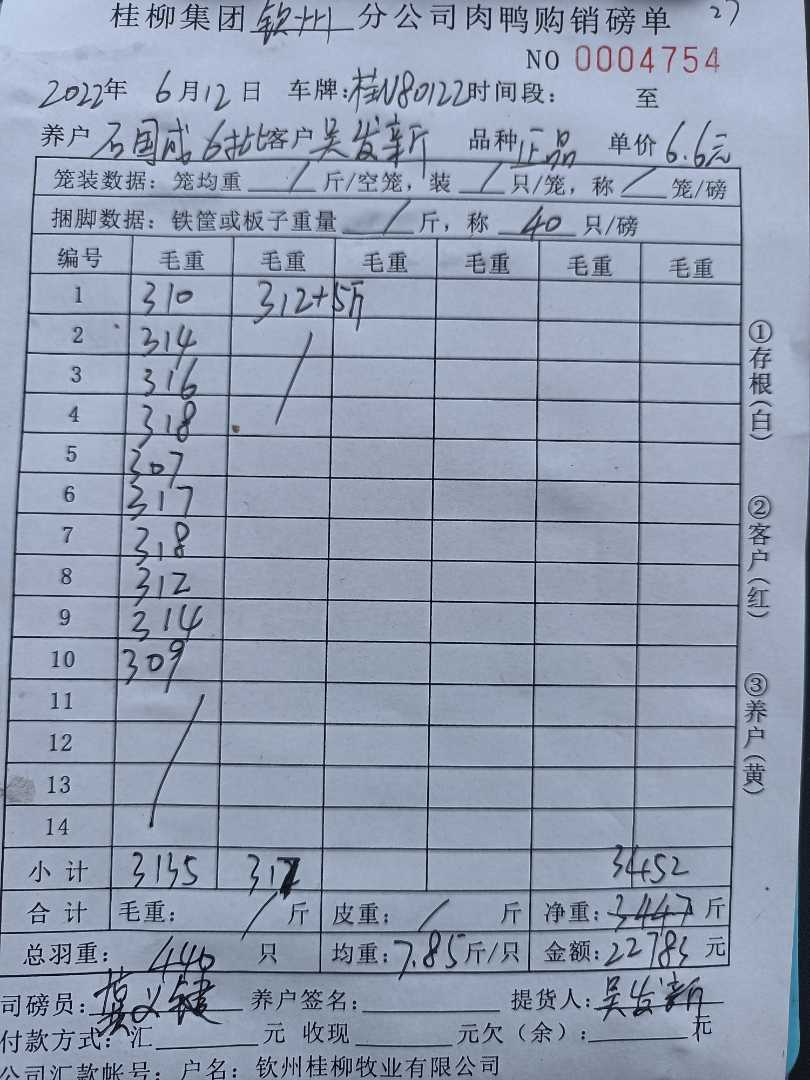 27
桂柳集团钦州分公司肉鸭购销磅单
NO 0004754
2022年 6月12日 车牌:桂N80122时间段: 至
养户石国成6批客户吴发新 品种正品 单价6.6元
笼装数据: 笼均重 / 斤/空笼, 装 / 只/笼, 称 / 笼/磅
捆脚数据: 铁筐或板子重量 / 斤, 称 40 只/磅
编号 毛重 毛重 毛重 毛重 毛重 毛重
1 310 312+5斤
2 314 /
3 316
4 318
5 307
6 317
7 318
8 312
9 314
10 309
11 /
12
13
14
小计 3135 317 3452
合计 毛重: / 斤 皮重: / 斤 净重:3447斤
总羽重: 440 只 均重:7.85斤/只 金额:22783元
司磅员: 黄义键 养户签名: 提货人:吴发新
付款方式: 汇 元 收现 元欠(余): 元
公司汇款帐号: 户名: 钦州桂柳牧业有限公司
①存根(白)
②客户(红)
③养户(黄)